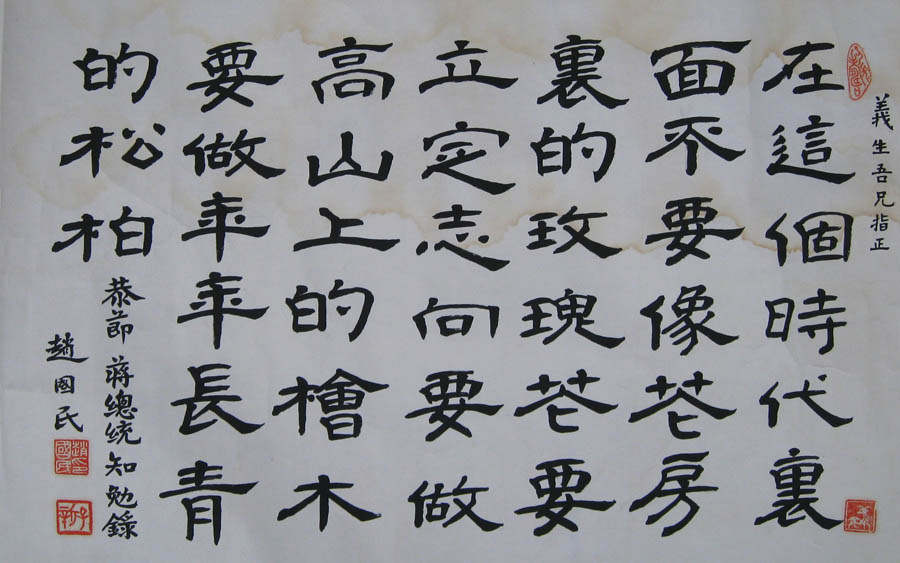 義生吾兄指正
在這個時代裏
面不要像花房
裏的玫瑰花要
立定志向要做
高山上的檜木
要做年年長青
的松柏
恭節 蔣總統知勉錄
趙國民